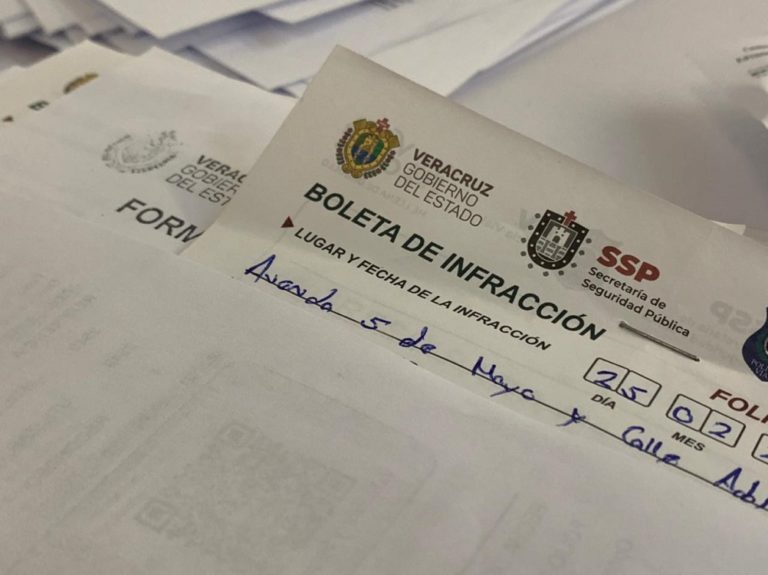 VERACRUZ
GOBIERNO
DEL ESTADO
SSP
Secretaría de
Seguridad Pública
BOLETA DE INFRACCIÓN
LUGAR Y FECHA DE LA INFRACCIÓN
Avenida 5 de Mayo y Calle
25 02
DÍA MES
VERAC
GOBIER
DEL EST
FORM